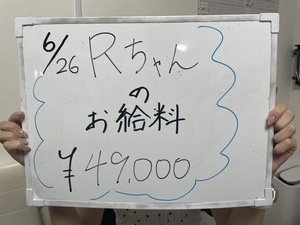 6/26 Rちゃん
の
お給料
¥49,000